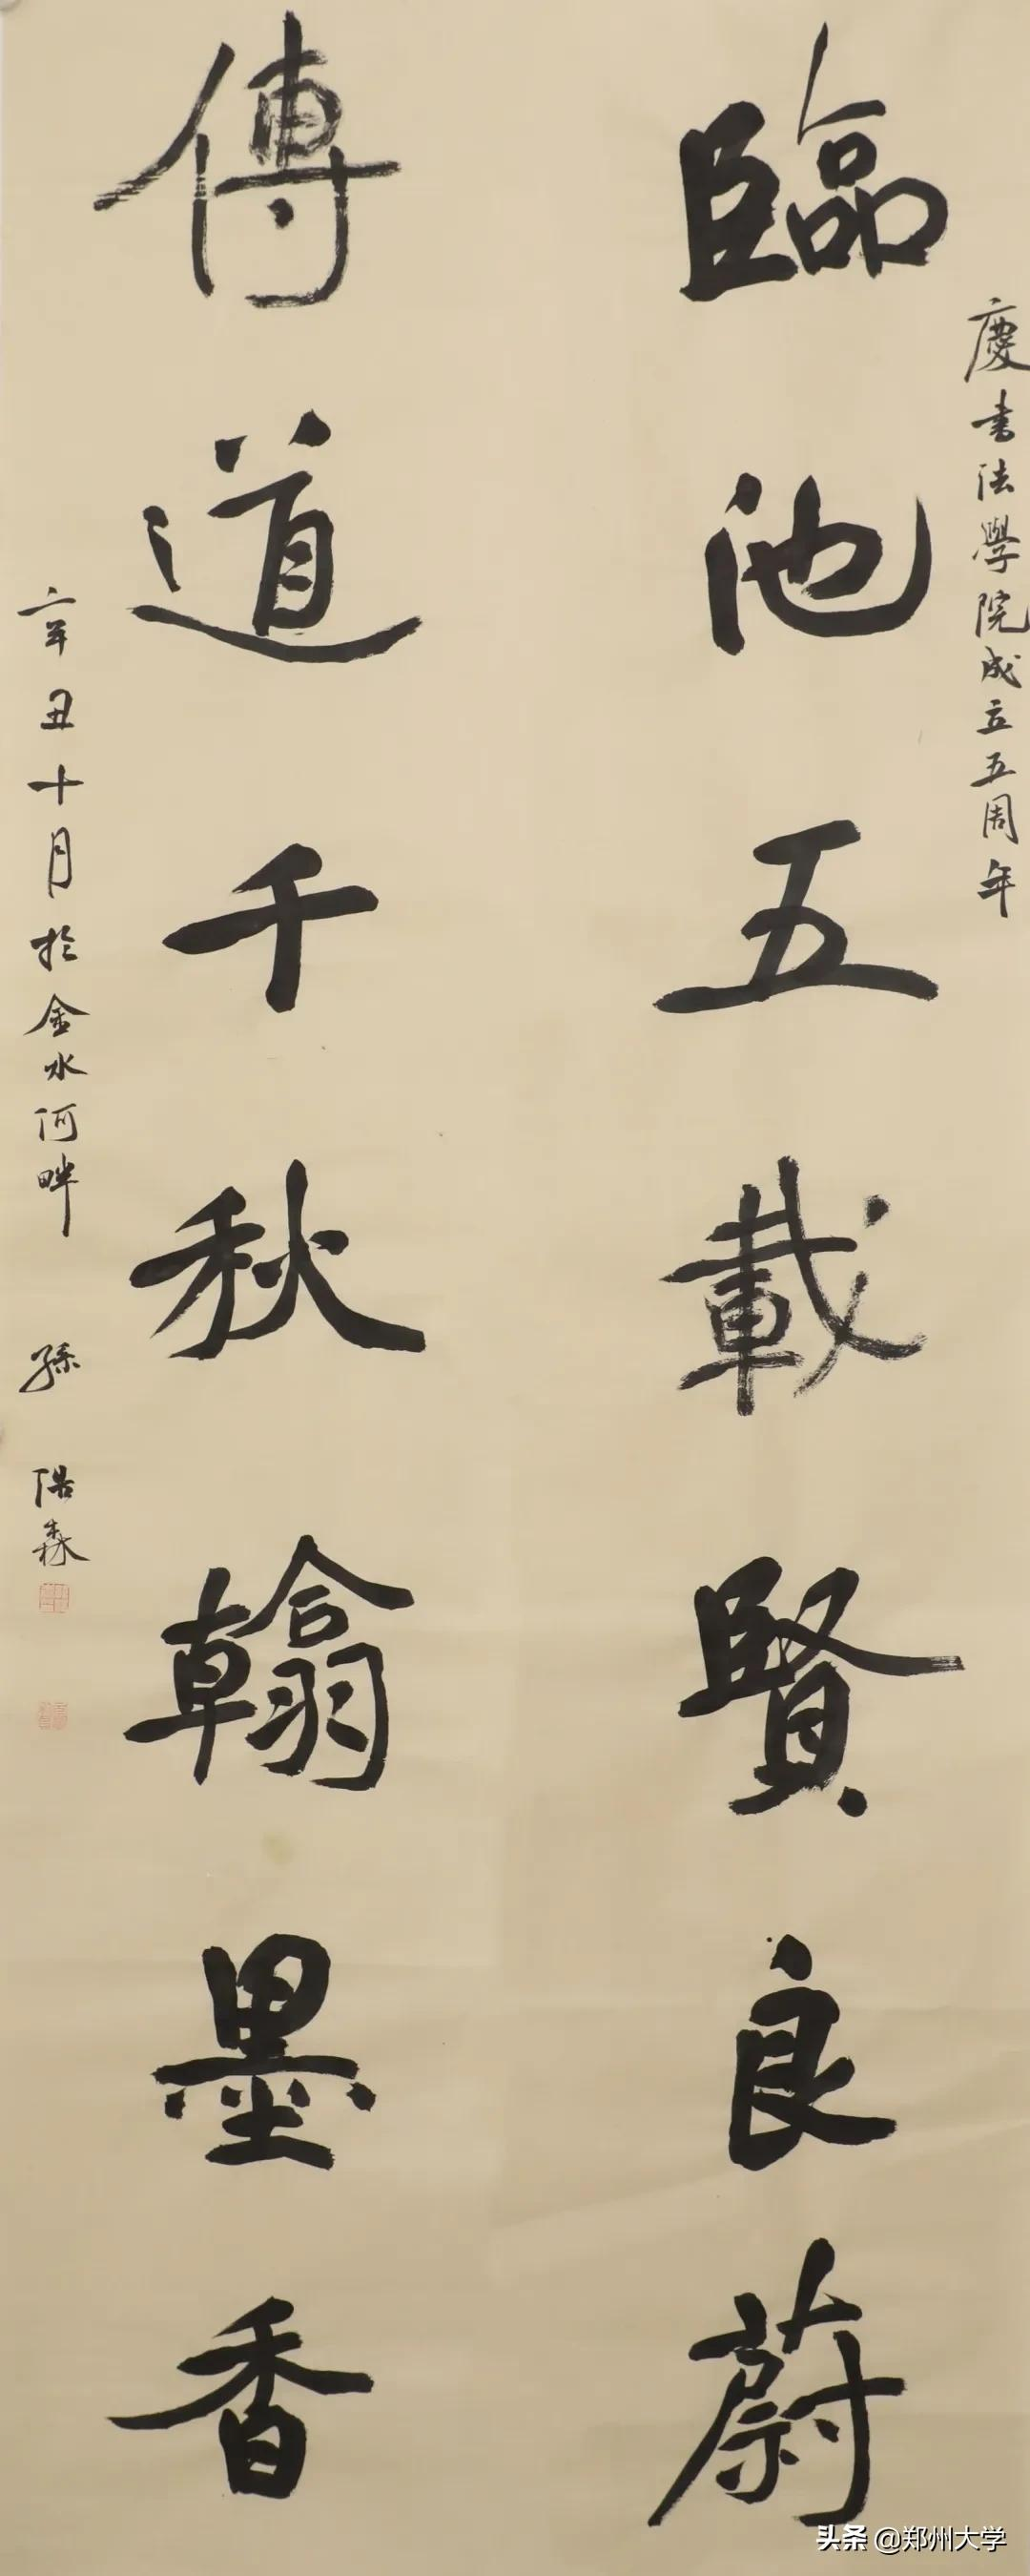 慶書法學院成立五周年
臨池五載賢良蔚
傳道千秋翰墨香
辛丑十月於金水河畔 孫浩森
头条 @郑州大学